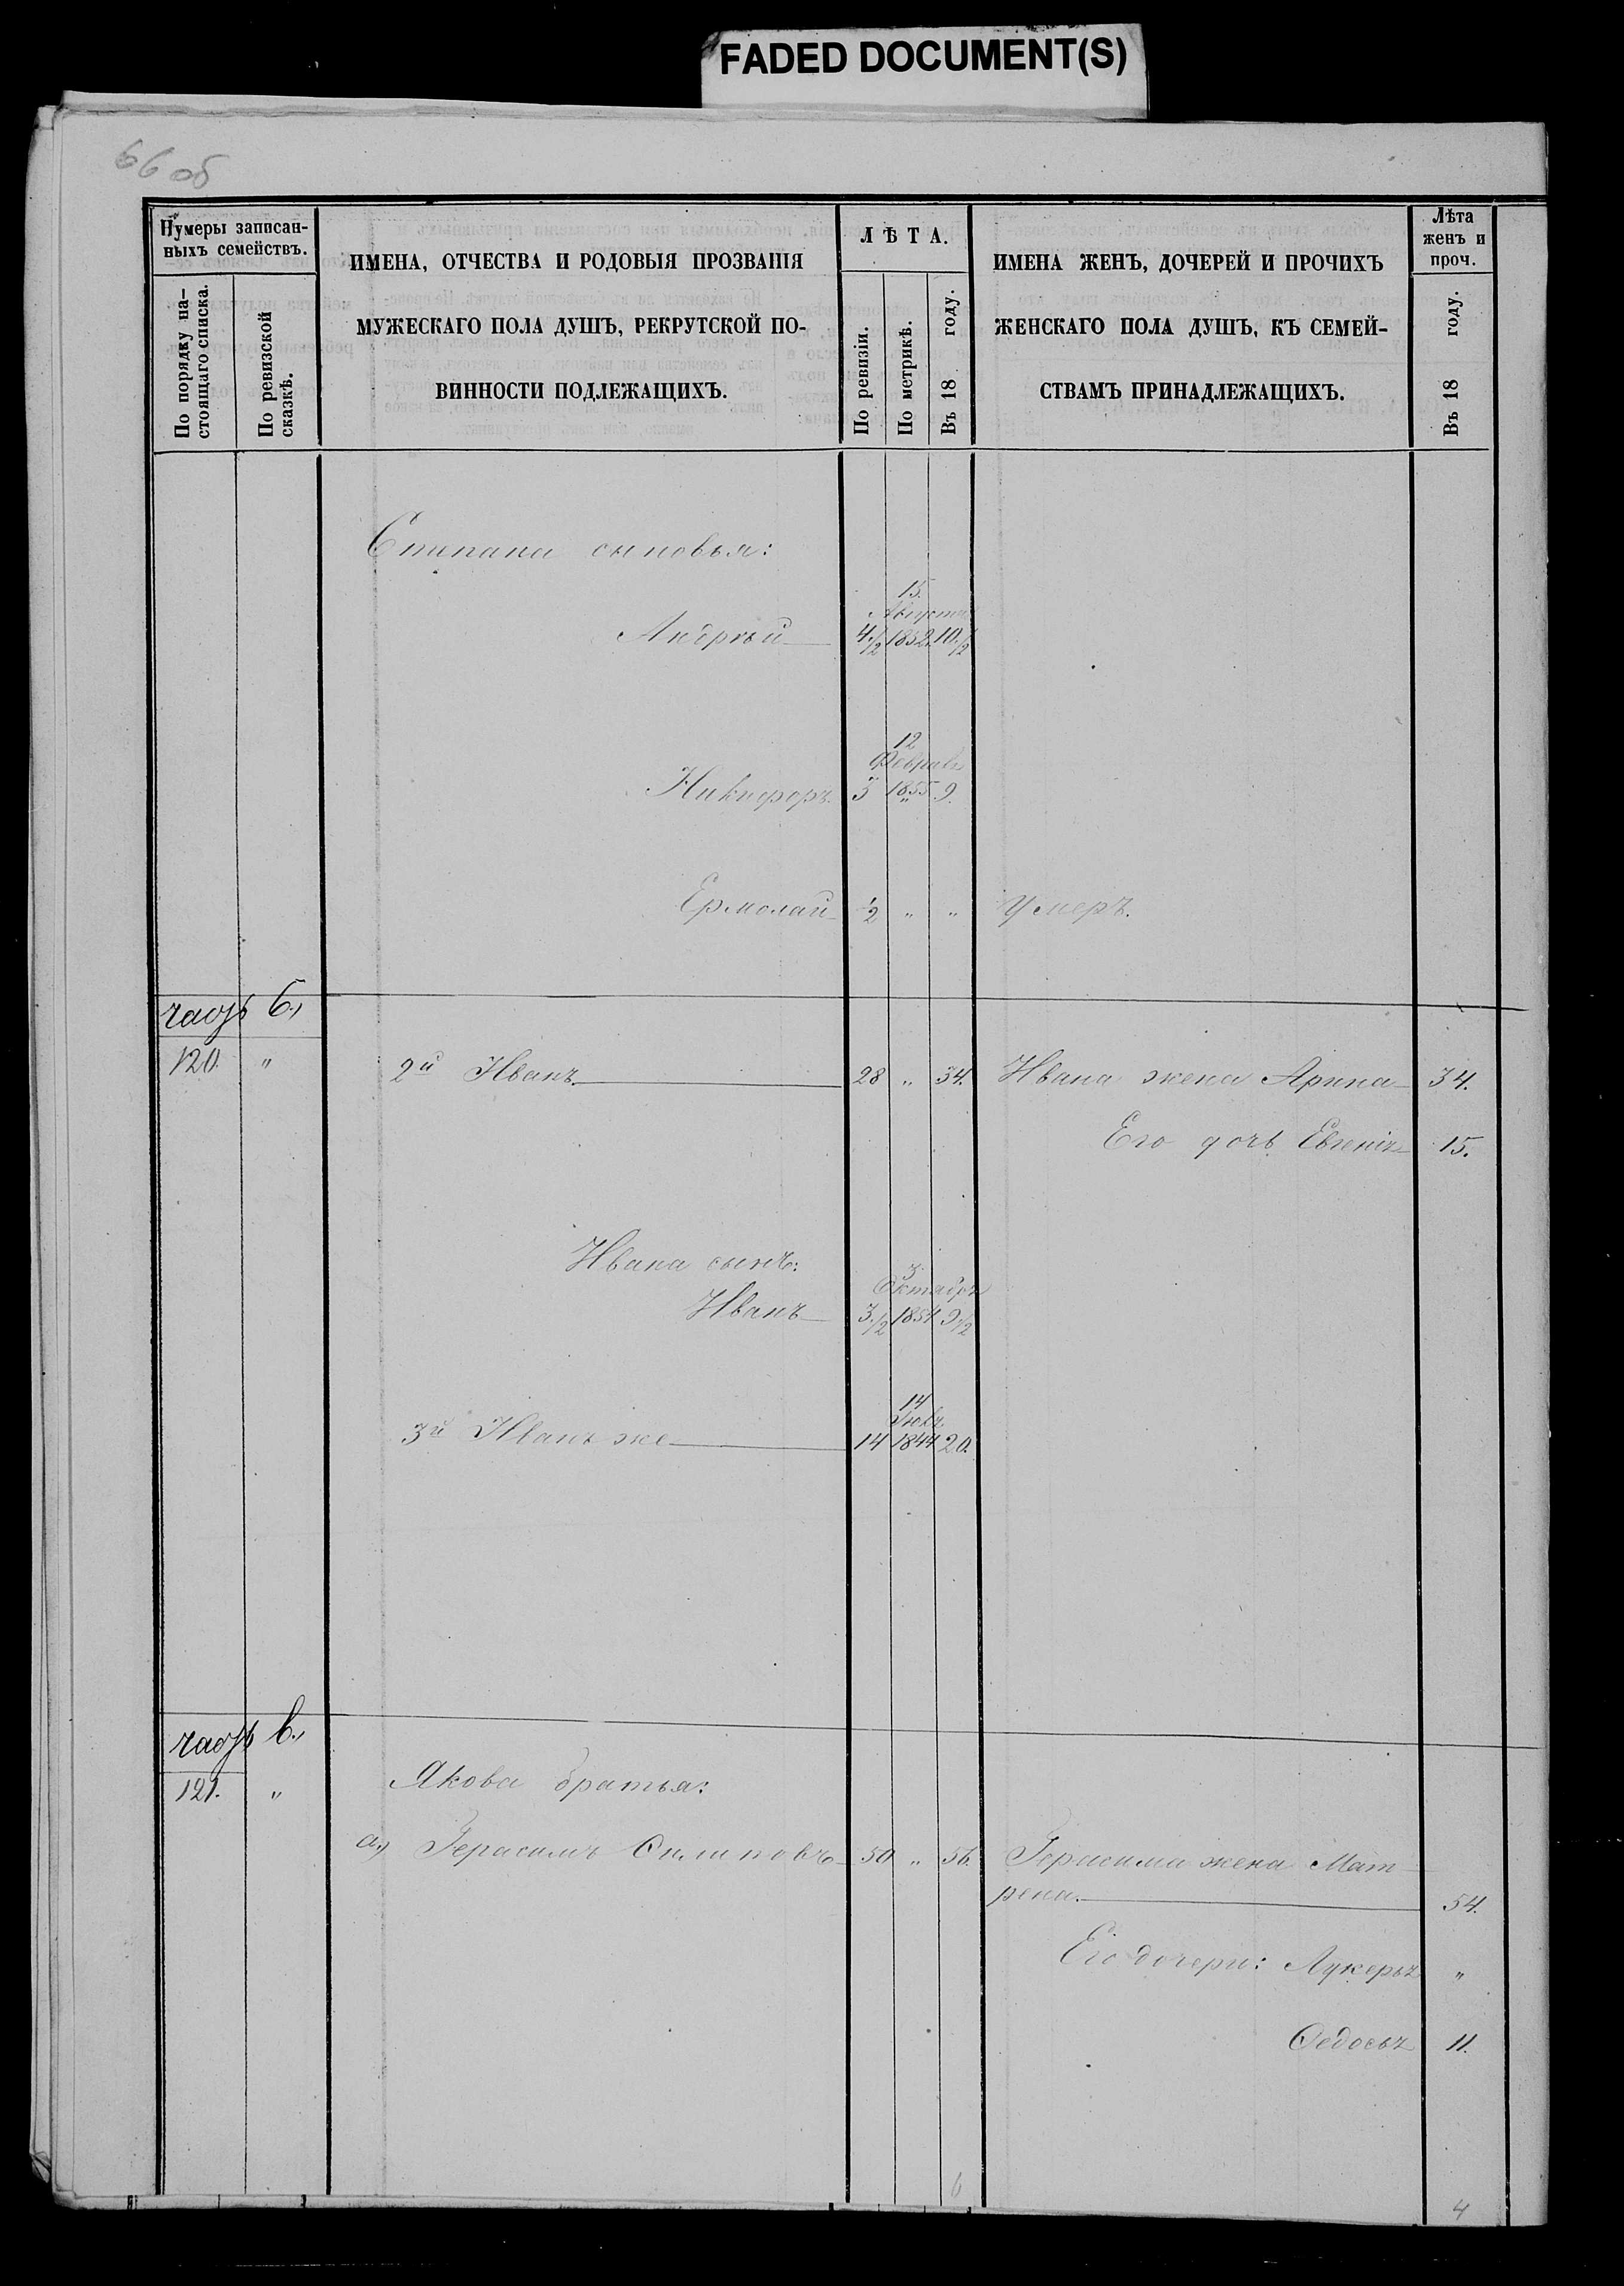 FADED DOCUMENT(S)
66 об
Нумеры записан-
ныхъ семействъ.
По порядку на-
стоящаго списка.
По ревизской
сказкѣ.
ИМЕНА, ОТЧЕСТВА И РОДОВЫЯ ПРОЗВАНІЯ
МУЖЕСКАГО ПОЛА ДУШЪ, РЕКРУТСКОЙ ПО-
ВИННОСТИ ПОДЛЕЖАЩИХЪ.
ЛѢТА.
По ревизіи.
По метрикѣ.
Въ 18 году.
ИМЕНА ЖЕНЪ, ДОЧЕРЕЙ И ПРОЧИХЪ
ЖЕНСКАГО ПОЛА ДУШЪ, КЪ СЕМЕЙ-
СТВАМЪ ПРИНАДЛЕЖАЩИХЪ.
Лѣта
женъ и
проч.
Въ 18 году.
Степана сыновья:
15.
Августа
Андрѣй 4 1/2 1852. 10 1/2
12
Февраля
Никифоръ. 3 1855 9.
Ермолай 1/2 " " Умеръ.
часть б.,
120. " 2й Иванъ 28 " 34. Ивана жена Арина 34.
Его дочь Евгенія 15.
Ивана сынъ:
3
Октября
Иванъ 3 1/2 1854 9 1/2
14
3й Иванъ же 14 1844 20.
часть в.,
121. " Якова братья:
а.) Герасимъ Филиповъ 50 " 56. Герасима жена Мат-
рена. 54.
Его дочери: Лукерья "
Федосья 11.
6
4